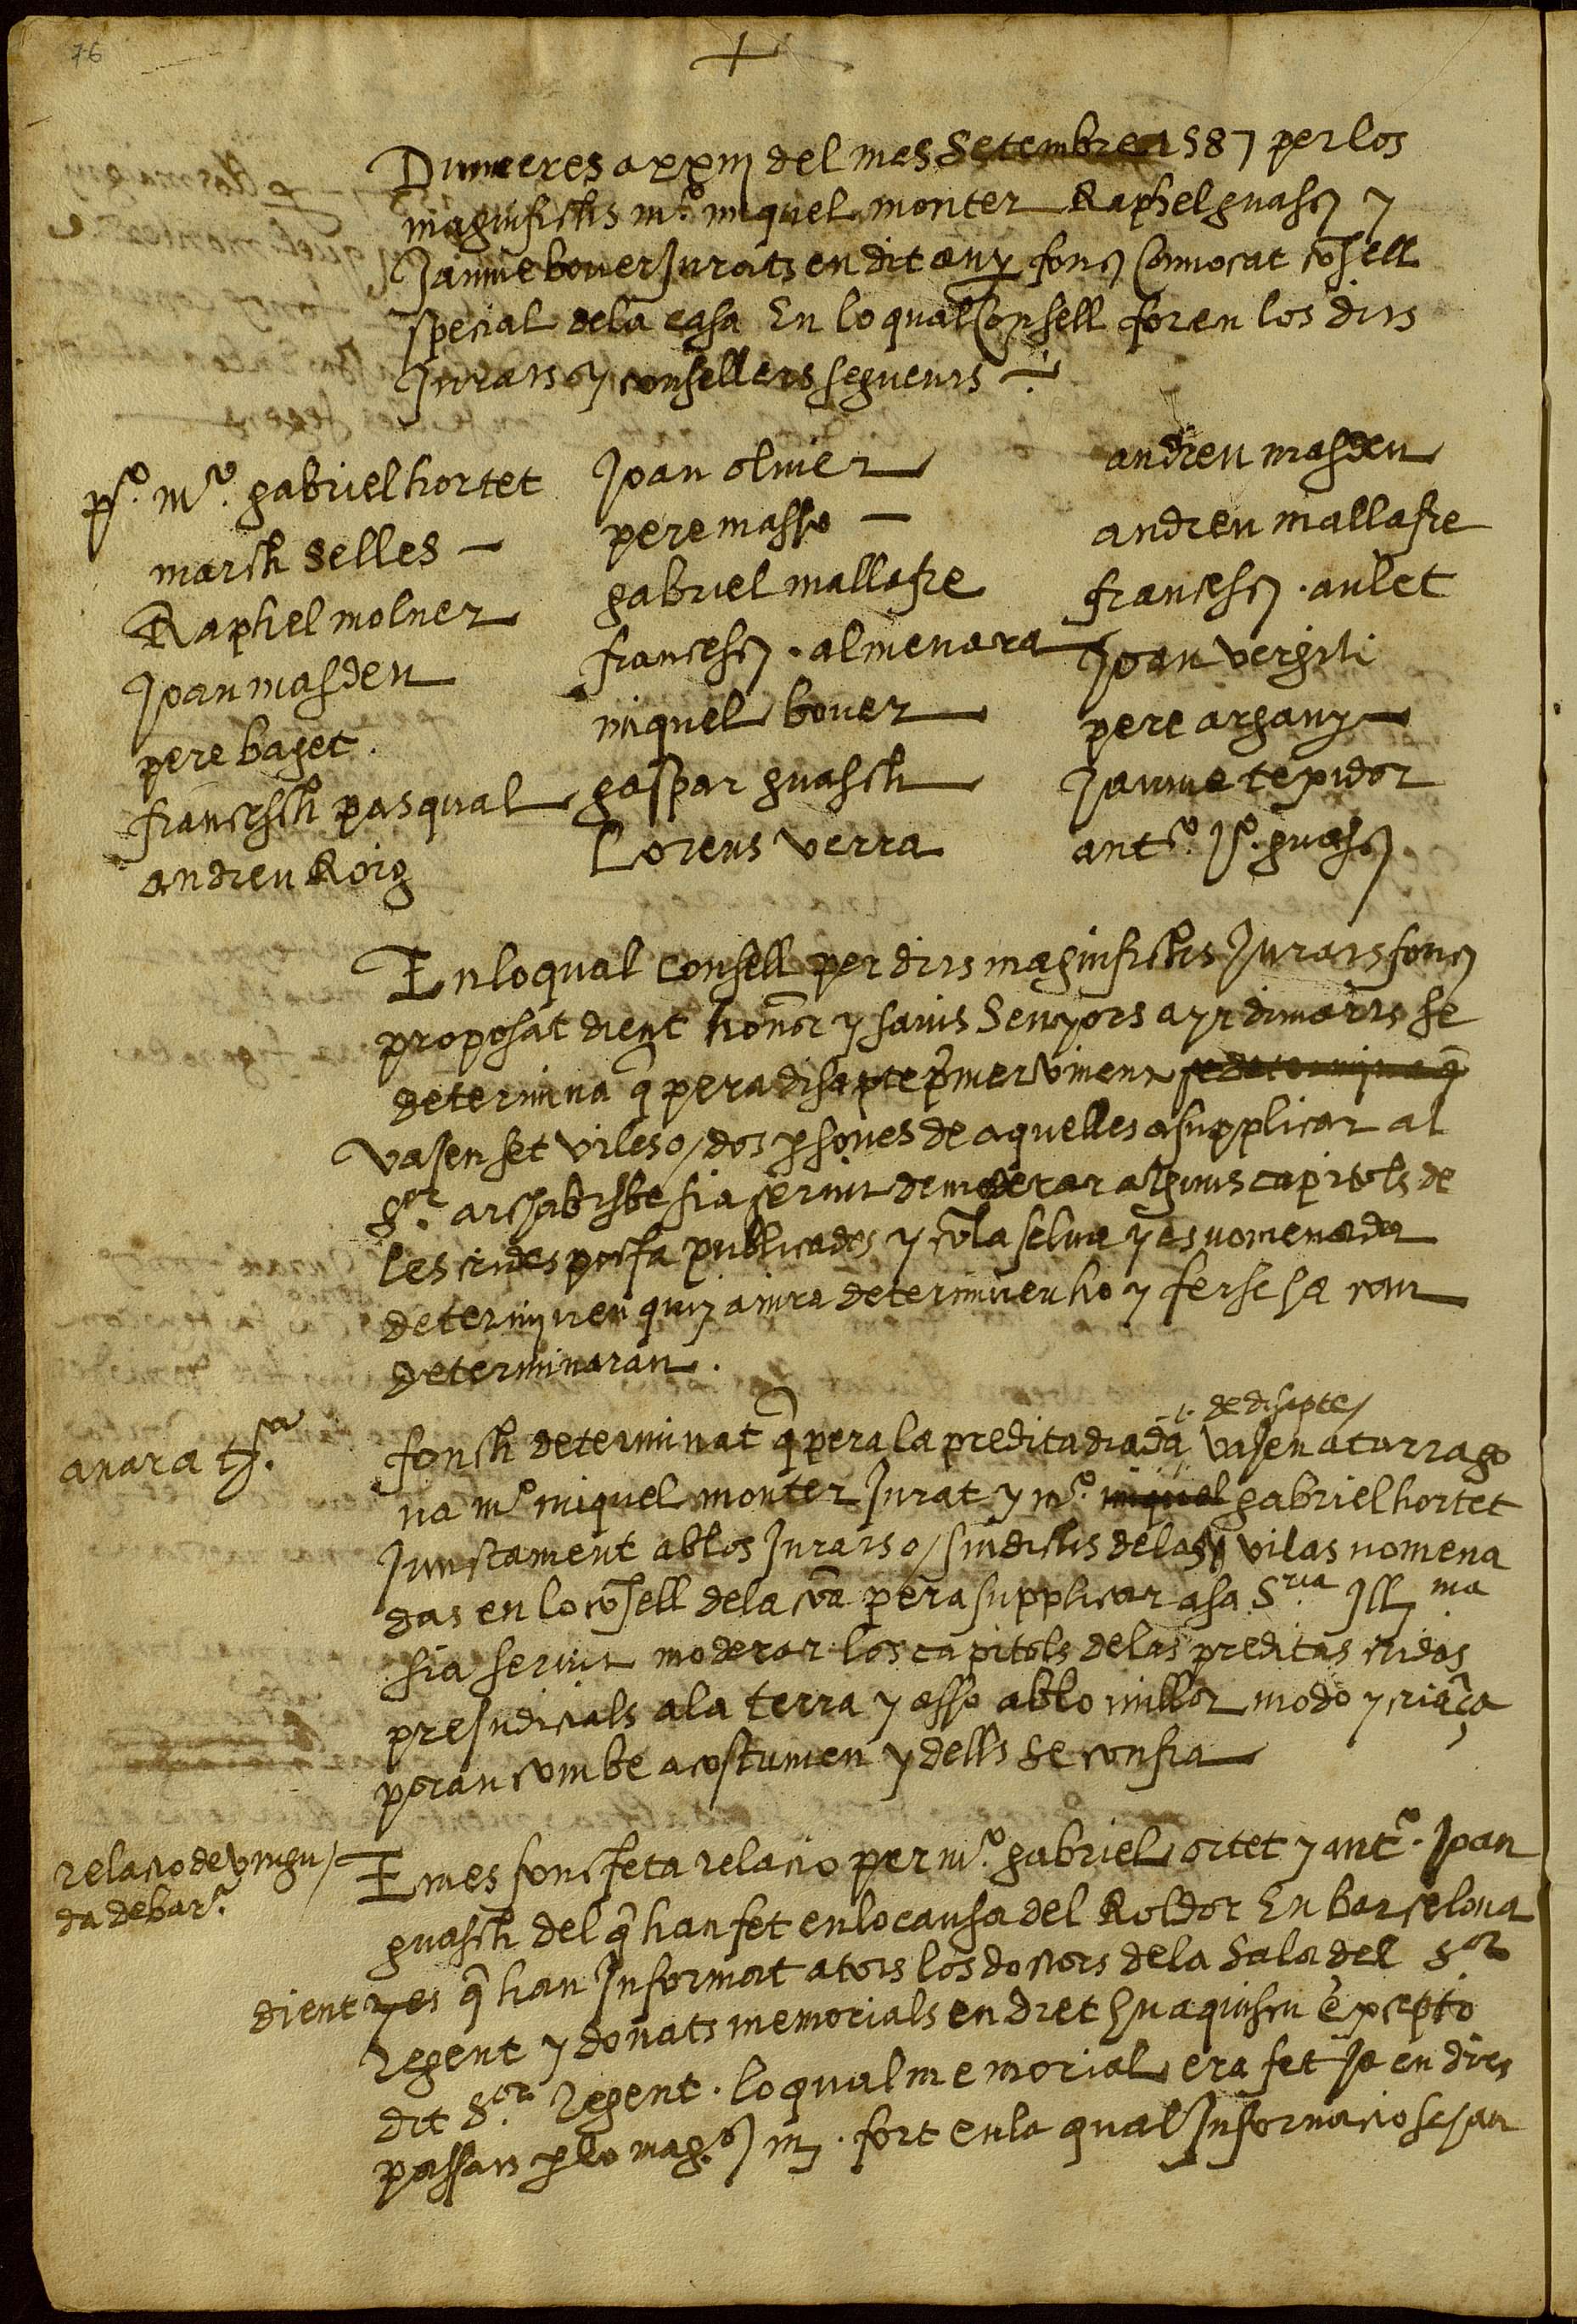 76
+
Dimecres a xxiij del mes Setembre 1587 per los
magnifichs mº. miquel monter Raphel guasch y
Jaume bover Jurats en dit any fonch Convocat cosell
special dela casa En lo qual Consell foren los dits
Jurats y consellers seguents
pº. mº. gabriel hortet
march selles
Raphel molner
Joan masdeu
pere baget.
francesch pasqual
andreu Roig
Joan oliver
pere masso
gabriel mallafre
francesch. almenara
miquel bover
gaspar guasch
Lorens verra
andreu masdeu
andreu mallafre
francesch. aulet
Joan vergili
pere argany
Jaume texidor
antº. Jº. guasch
En lo qual Consell per dits magnifichs Jurats fonch
proposat dient honor y savis Senyors ayr dimarts se
determina q pera disapte primer vinent se determina q
vajen set viles o/ dos psones de aquelles a supplicar al
Sor. archabisbe sia servit de moderar alguns capitols de
les crides pocsa publicades y co la selva y es nomenada
determinen quiy anira determinen ho y ferse ha com
determinaran.
anar a tª.
fonch determinat q pera la predita diada de disapte/ vajen a tarrago
na mº miquel monter Jurat y mº. miquel gabriel hortet
Junctament ab los Jurats o/ sindichs de las vilas nomena
das en lo cosell dela coa pera supplicar a sa S.ria Ill.ma
sia servit moderar los capitols de las preditas cridas
prejudicials a la terra y asso ab lo millor modo y criaça
poran com be acostumen y dells se confia
relacio de vingu/
da de barª.
E mes fonch feta relacio per mº. gabriel ortet y antº. Joan
guasch del q han fet en lo causa del Roldor En barselona
dient y es q han Informat a tots los doctors dela Sala del Sor
Regent y donats memorials en dret hu a quiscu excepto
dit Sor. Regent. lo qual memorial era fet ja en dies
passats p lo magch mº. fort en la qual Informacio se jan